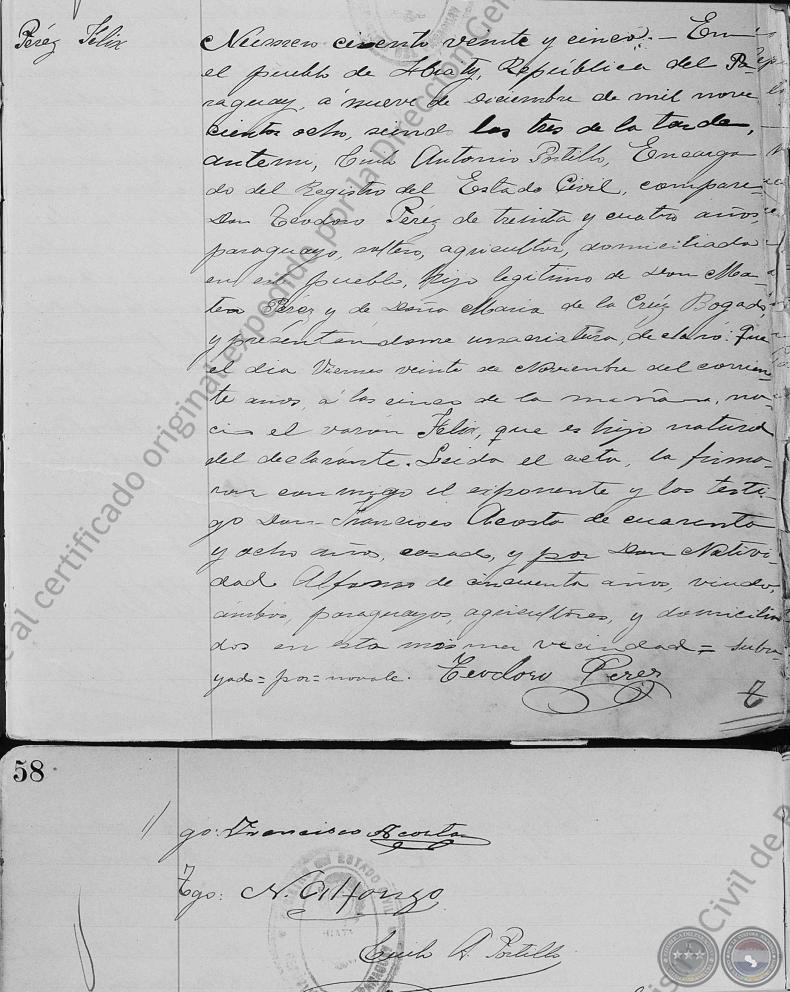 Peréz Felix
Número ciento veinte y cinco. – En
el pueblo de Yhaty, República del Pa-
raguay, á nueve de Diciembre de mil nove
cientos ocho, siendo las tres de la tarde,
antemi, Emilio Antonio Portillo, Encarga
do del Registro del Estado Civil, compare
Don Teodoro Peréz de treinta y cuatro años,
paraguayo, soltero, agricultor, domiciliado
en este pueblo, hijo legitimo de Don Ma-
teo Peréz y de Doña Maria de la Crúz Bogado
y presentandome una criatura, declaró: Que
el dia Viernes veinte de Noviembre del corrien-
te años, á las cinco de la mañana, na-
cio el varón Felix, que es hijo natural
del declarante. Leida el acta, la firma-
ron conmigo el exponente y los testi-
go Don Francisco Acosta de cuarenta
y ocho años, casado, y por Don Nativi-
dad Alfonso de cincuenta años, viudo,
ambos, paraguayos, agricultores, y domicilia
dos en esta misma vecindad = Subra-
yado = por = no vale. Teodoro Perez
T
58
go: Francisco Acosta
Tgo: N. Alfonzo
Emilio A. Portillo
e al certificado original expedido por la Dirección Gen
gis Civil de
ESTADO CIVIL
PARAGUAY